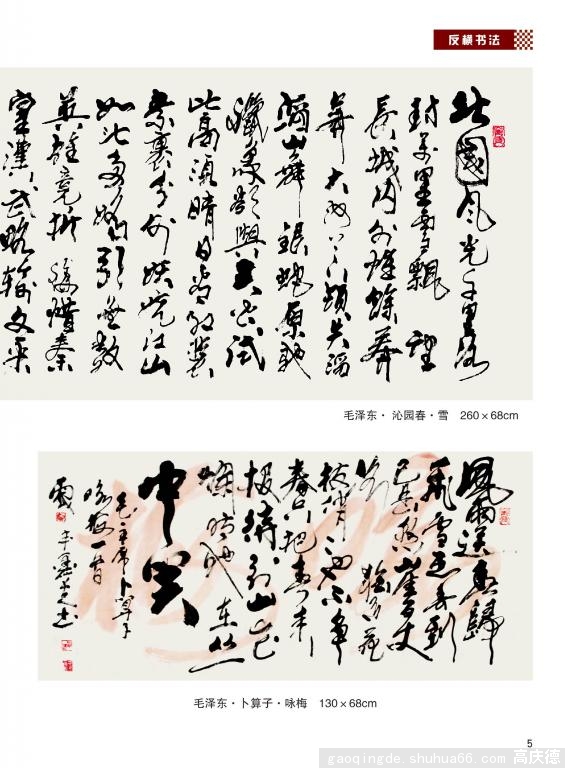 反横书法
北國风光千里冰
封萬里雪飄 望
長城内外惟餘莽
莽大河上下頓失滔
滔山舞銀蛇原馳
蠟象欲與天公試
比高須晴日看紅裝
素裹分外妖嬈江山
如此多嬌引無數
英雄竞折腰惜秦
皇漢武略輸文采
毛泽东·沁园春·雪 260×68cm
風雨送春歸
飛雪迎春到
已是懸崖百丈
冰 猶有花
枝俏 俏也不争
春只把春来
报待到山花
爛時她在丛
中笑
毛主席卜算子
咏梅一首
毛泽东·卜算子·咏梅 130×68cm
5
gaoqingde.shuhua66.com 高庆德